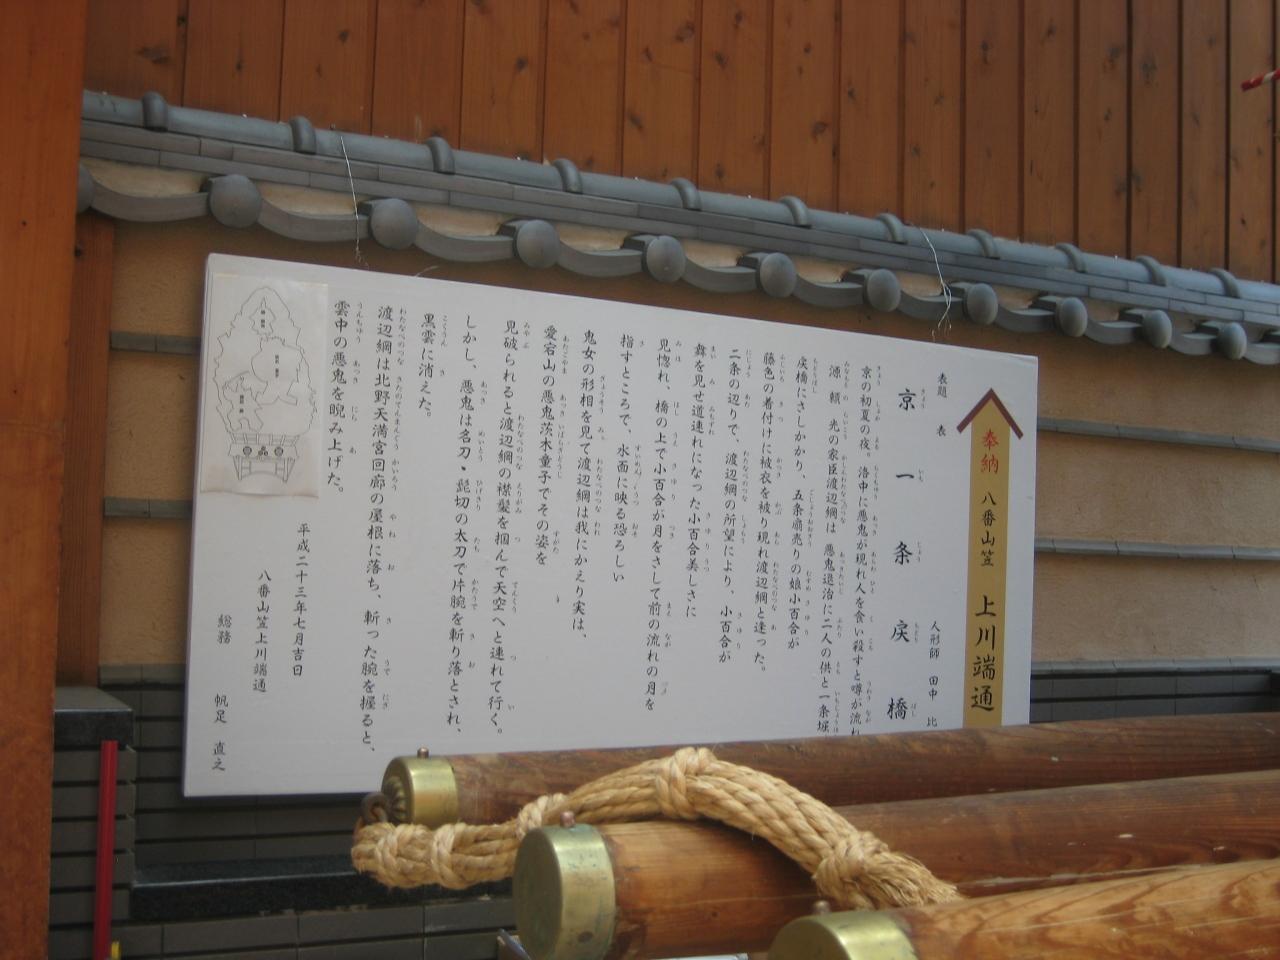 奉納 八番山笠 上川端通
表題 表
京一条戻橋
人形師 田中 比
京の初夏の夜。洛中に悪鬼が現れ人を食い殺すと噂が流れ
源頼光の家臣渡辺綱は 悪鬼退治に二人の供と一条堀
戻橋にさしかかり、五条扇売りの娘小百合が
藤色の着付けに被衣を被り現れ渡辺綱と逢った。
二条の辺りで、渡辺綱の所望により、小百合が
舞を見せ道連れになった小百合美しさに
見惚れ、橋の上で小百合が月をさして前の流れの月を
指すところで、水面に映る恐ろしい
鬼女の形相を見て渡辺綱は我にかえり実は、
愛宕山の悪鬼茨木童子でその姿を
見破られると渡辺綱の襟髪を掴んで天空へと連れて行く。
しかし、悪鬼は名刀・髭切の太刀で片腕を斬り落とされ、
黒雲に消えた。
渡辺綱は北野天満宮回廊の屋根に落ち、斬った腕を握ると、
雲中の悪鬼を睨み上げた。
平成二十三年七月吉日
八番山笠上川端通
総務 帆足 直之